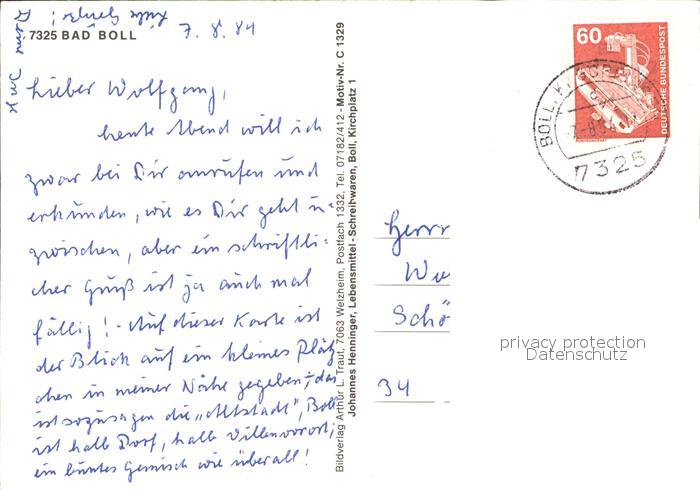 7325 BAD BOLL
7. 8. 84
Lieber Wolfgang,
heute Abend will ich
zwar bei Dir anrufen und
erkunden, wie es Dir geht in-
zwischen, aber ein schriftli-
cher Gruß ist ja auch mal
fällig! - Auf dieser Karte ist
der Blick auf ein kleines Plätz-
chen in meiner Nähe gegeben; das
ist sozusagen die „Altstadt", Boll
ist halb Dorf, halb Villenvorort;
ein buntes Gemisch wie überall!
Deine
Bildverlag Arthur L. Traut, 7063 Welzheim, Postfach 1332, Tel. 07182/412 - Motiv-Nr. C 1329
Johannes Henninger, Lebensmittel - Schreibwaren, Boll, Kirchplatz 1
60
DEUTSCHE BUNDESPOST
BOLL, K
7325
Herrn
Wu
Schö
34
privacy protection
Datenschutz